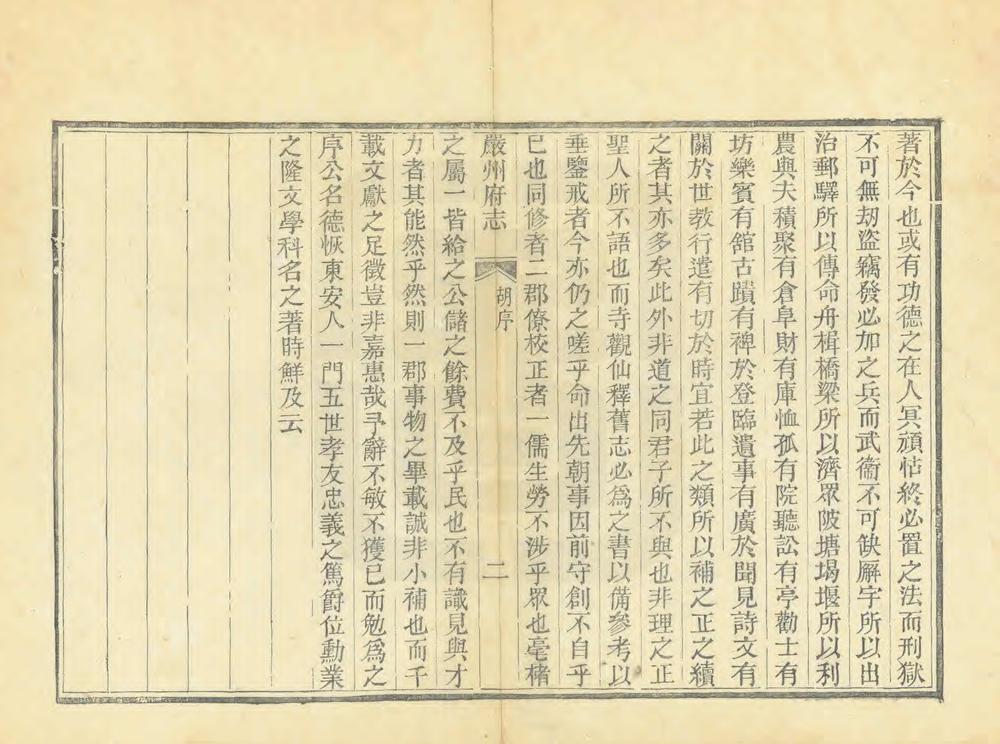 著於今也或有功德之在人冥頑怙終必置之法而刑獄
不可無刼盜竊發必加之兵而武衞不可缺廨宇所以出
治郵驛所以傳命舟楫橋梁所以濟眾陂塘堨堰所以利
農與夫積聚有倉阜財有庫恤孤有院聽訟有亭勸士有
坊樂賓有舘古蹟有裨於登臨遺事有廣於聞見詩文有
關於世教行遣有切於時宜若此之類所以補之正之續
之者其亦多矣此外非道之同君子所不與也非理之正
聖人所不語也而寺觀仙釋舊志必爲之書以備參考以
垂鑒戒者今亦仍之嗟乎命出先朝事因前守創不自乎
巳也同修者二郡僚校正者一儒生勞不涉乎眾也毫楮
嚴州府志
胡序
二
之屬一皆給之公儲之餘費不及乎民也不有識見與才
力者其能然乎然則一郡事物之畢載誠非小補也而千
載文獻之足徵豈非嘉惠哉予辭不敏不獲已而勉爲之
序公名德恢東安人一門五世孝友忠義之篤爵位勳業
之隆文學科名之著時鮮及云